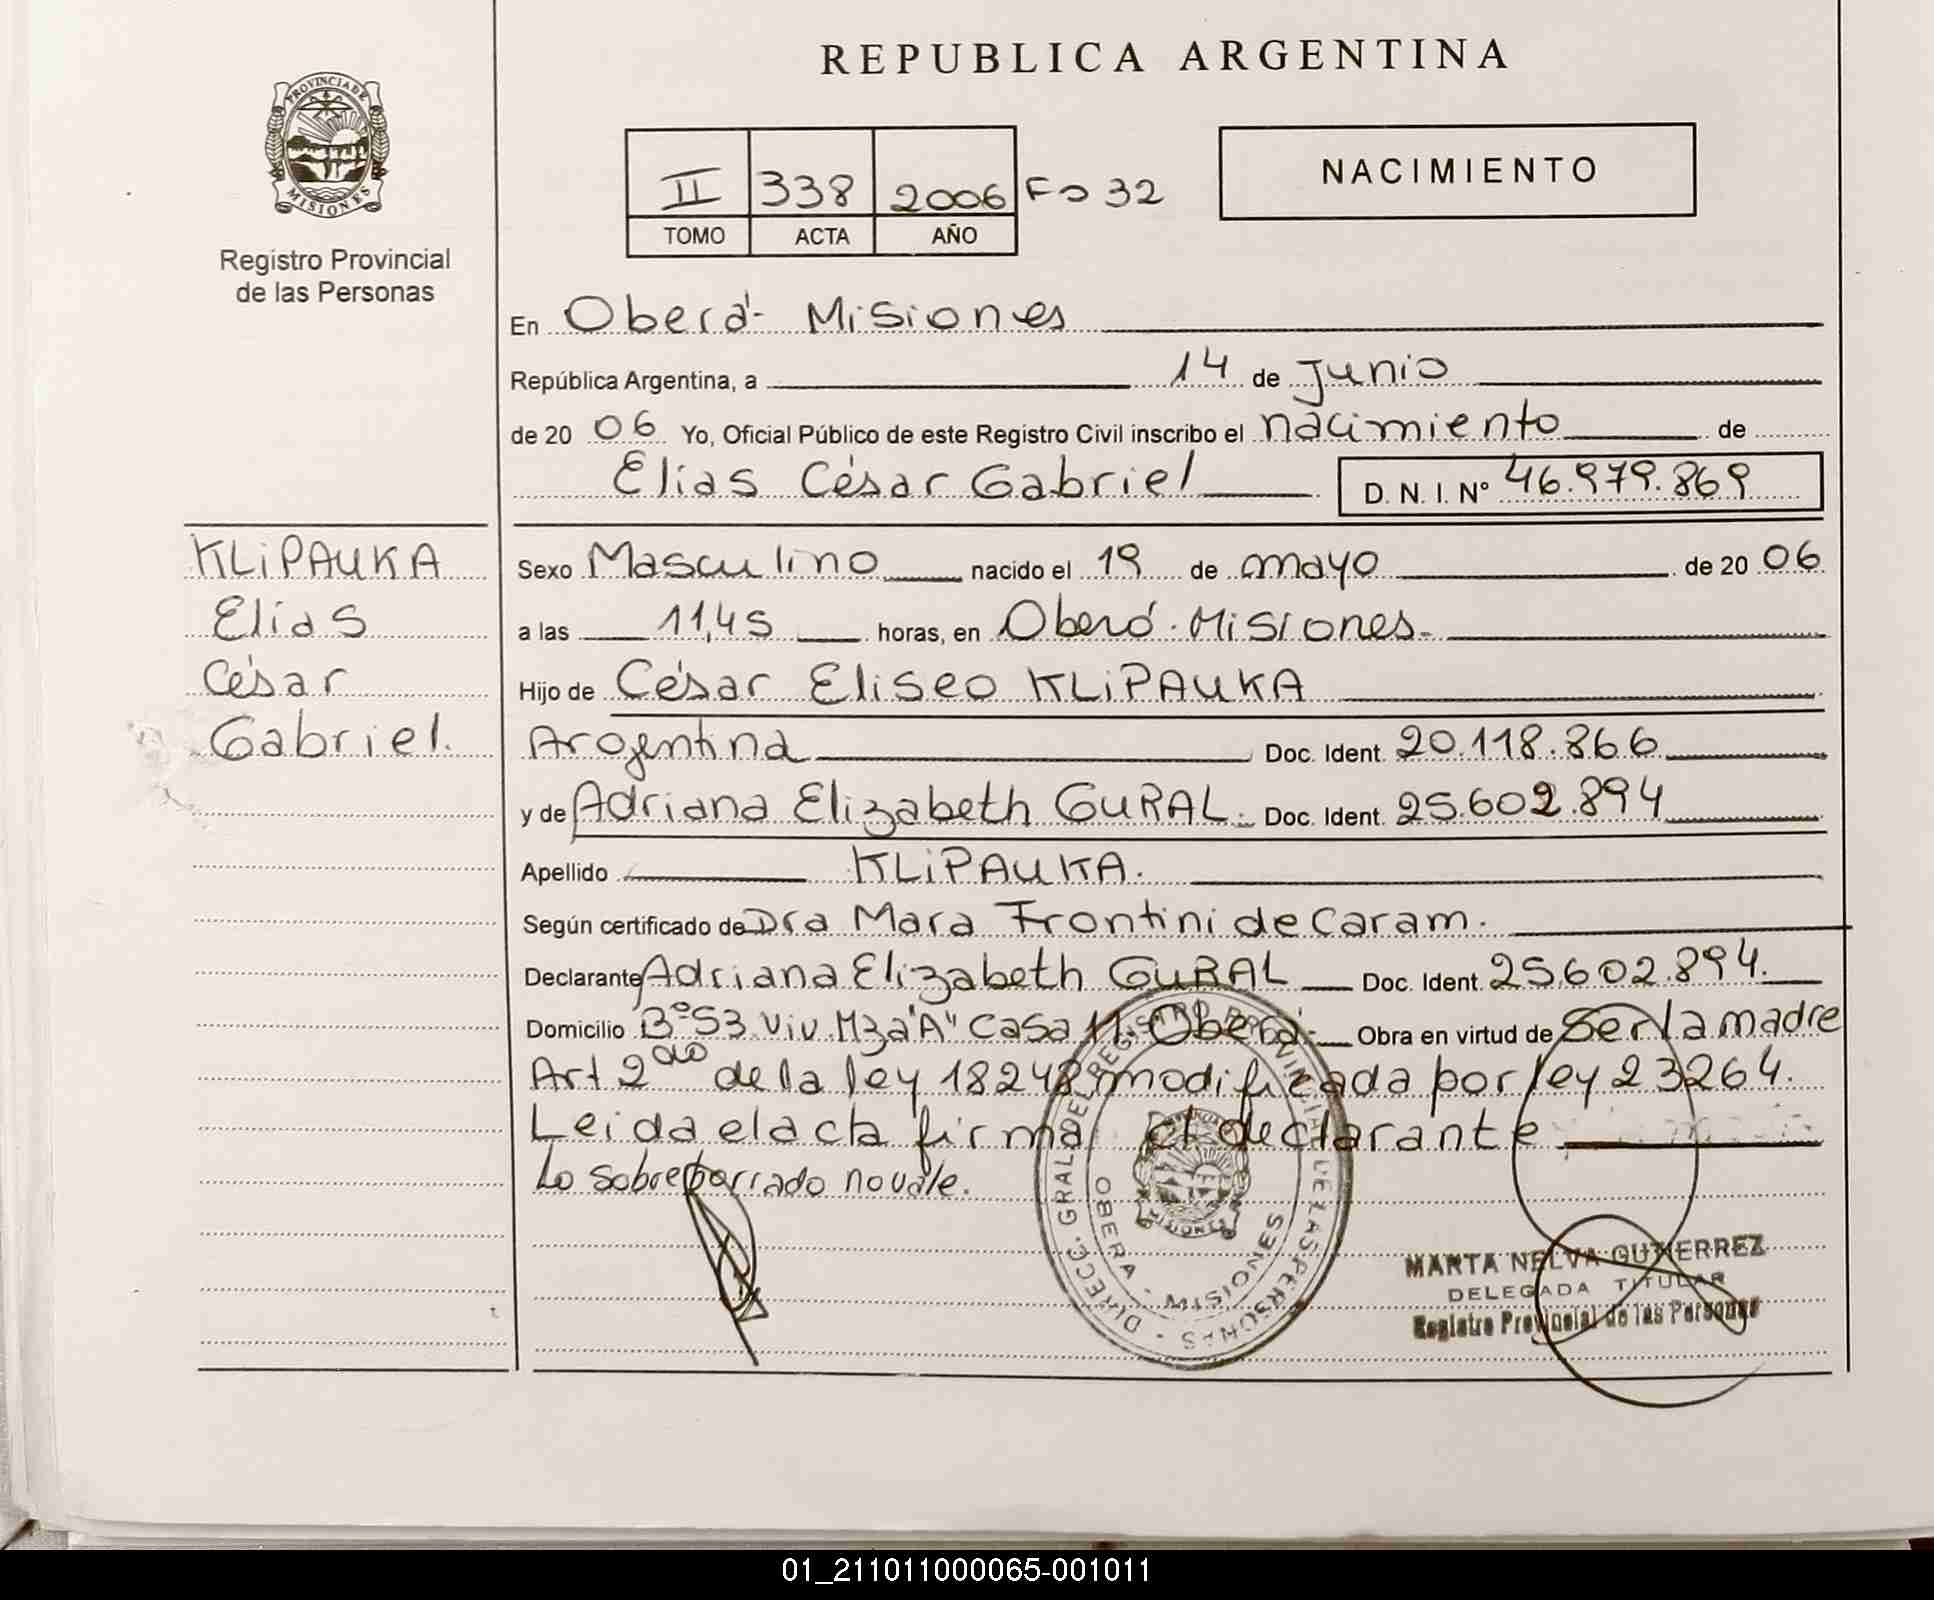 REPUBLICA ARGENTINA
PROVINCIA DE
MISIONES
Registro Provincial
de las Personas
II 338 2006 Fo 32
TOMO ACTA AÑO
NACIMIENTO
En Oberá - Misiones
República Argentina, a 14 de Junio
de 2006 Yo, Oficial Público de este Registro Civil inscribo el nacimiento de
Elias César Gabriel D. N. I. N° 46.979.869
KLiPAUKA
Elias
César
Gabriel.
Sexo Masculino nacido el 19 de mayo de 2006
a las 11,45 horas, en Oberá - Misiones.
Hijo de César Eliseo KLiPAUKA
Argentina Doc. Ident. 20.118.866
y de Adriana Elizabeth GURAL. Doc. Ident. 25.602.894
Apellido KLiPAUKA.
Según certificado de Dra Mara Frontini de Caram.
Declarante Adriana Elizabeth GURAL Doc. Ident. 25.602.894.
Domicilio B° 53 Viv. Mza "A" Casa 11. Oberá - Obra en virtud de Ser la madre
Art 2do de la ley 18248 modificada por ley 23264.
Leida el acta firma el declarante
Lo sobreborrado no vale.
DIRECC. GRAL. DEL REGISTRO PROVINCIAL DE LAS PERSONAS
OBERA - MISIONES
MISIONES
MARTA NELVA GUTIERREZ
DELEGADA TITULAR
Registro Provincial de las Personas
01_211011000065-001011